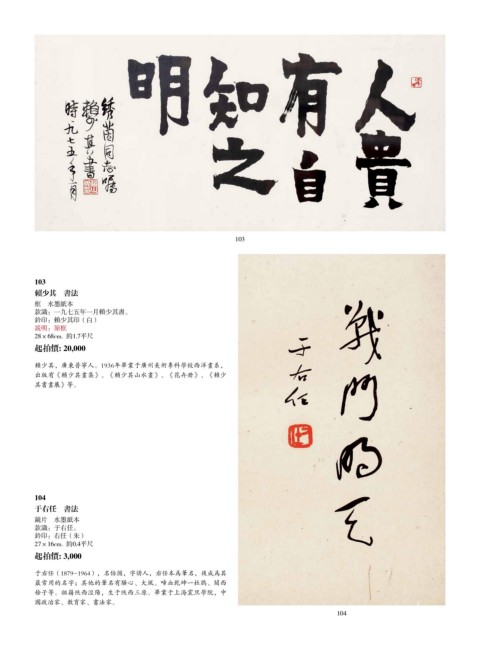 人貴
有自
知之
明
時一九七五年一月
103
103
賴少其　書法
框　水墨紙本
款識：一九七五年一月賴少其書。
鈐印：賴少其印（白）
說明：原框
28 x 68cm. 約1.7平尺
起拍價: 20,000
賴少其，廣東普寧人。1936年畢業于廣州美術專科學校西洋畫系，
出版有《賴少其畫集》、《賴少其山水畫》、《花卉冊》、《賴少
其書畫展》等。
戰鬥的天
于右任
104
于右任　書法
鏡片　水墨紙本
款識：于右任。
鈐印：右任（朱）
27 x 16cm. 約0.4平尺
起拍價: 3,000
于右任（1879~1964），名伯循，字誘人，右任本爲筆名，後成爲其
最常用的名字；其他的筆名有騷心、大風、啼血乾坤一杜鵑、關西
徐子等。祖籍陝西涇陽，生于陝西三原。畢業于上海震旦學院，中
國政治家、教育家、書法家。
104